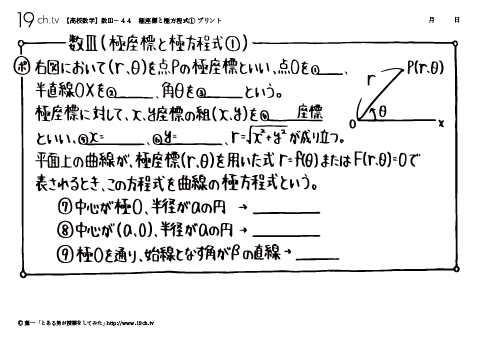 19ch.tv 【高校数学】数Ⅲ-44 極座標と極方程式① プリント 月 日
数Ⅲ(極座標と極方程式①)
ポ 右図において(r,θ)を点Pの極座標といい、点Oを①____、
半直線OXを②____、角θを③____という。
極座標に対して、x,y座標の組(x,y)を④____座標
といい、⑤x=____、⑥y=____、r=√x²+y² が成り立つ。
平面上の曲線が、極座標(r,θ)を用いた式 r=f(θ)またはF(r,θ)=0で
表されるとき、この方程式を曲線の極方程式という。
⑦中心が極O、半径がaの円 → ____
⑧中心が(a,0)、半径がaの円 → ____
⑨極Oを通り、始線となす角がβの直線→ ____
P(r,θ)
r
θ
O x
©葉一「とある男が授業をしてみた」http://www.19ch.tv